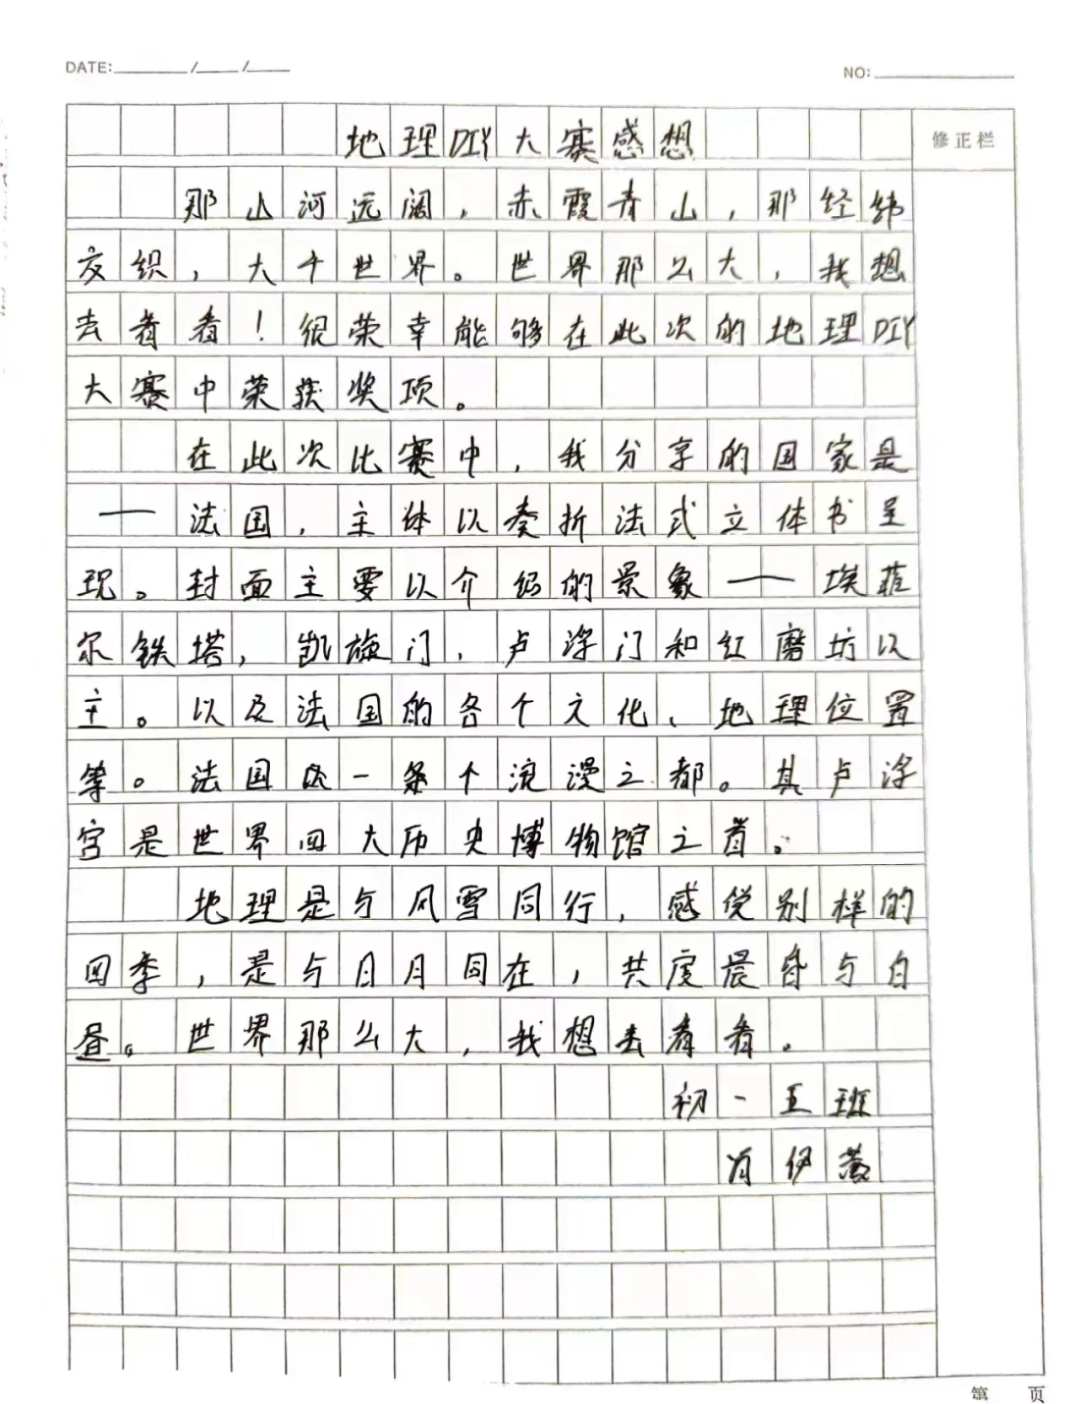 DATE: / /
NO:
修正栏
地理DIY大赛感想
那山河远阔，赤霞青山，那经纬
交织，大千世界。世界那么大，我想
去看看！很荣幸能够在此次的地理DIY
大赛中荣获奖项。
在此次比赛中，我分享的国家是
——法国，主体以奏折法式立体书呈
现。封面主要以介绍的景象——埃菲
尔铁塔，凯旋门，卢浮门和红磨坊以
主。以及法国的各个文化、地理位置
等。法国是一个浪漫之都。其卢浮
宫是世界四大历史博物馆之首。
地理是与风雪同行，感悦别样的
四季，是与日月同在，共度晨昏与白
昼。世界那么大，我想去看看。
初一五班
肖伊
第 页